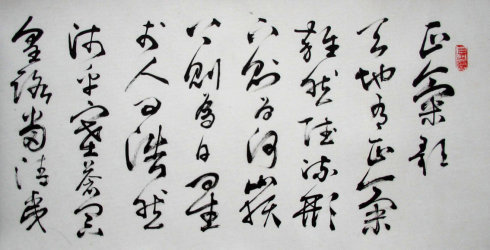 正氣歌
天地有正氣
雜然賦流形
下則為河嶽
上則為日星
於人曰浩然
沛乎塞蒼冥
皇路當清夷